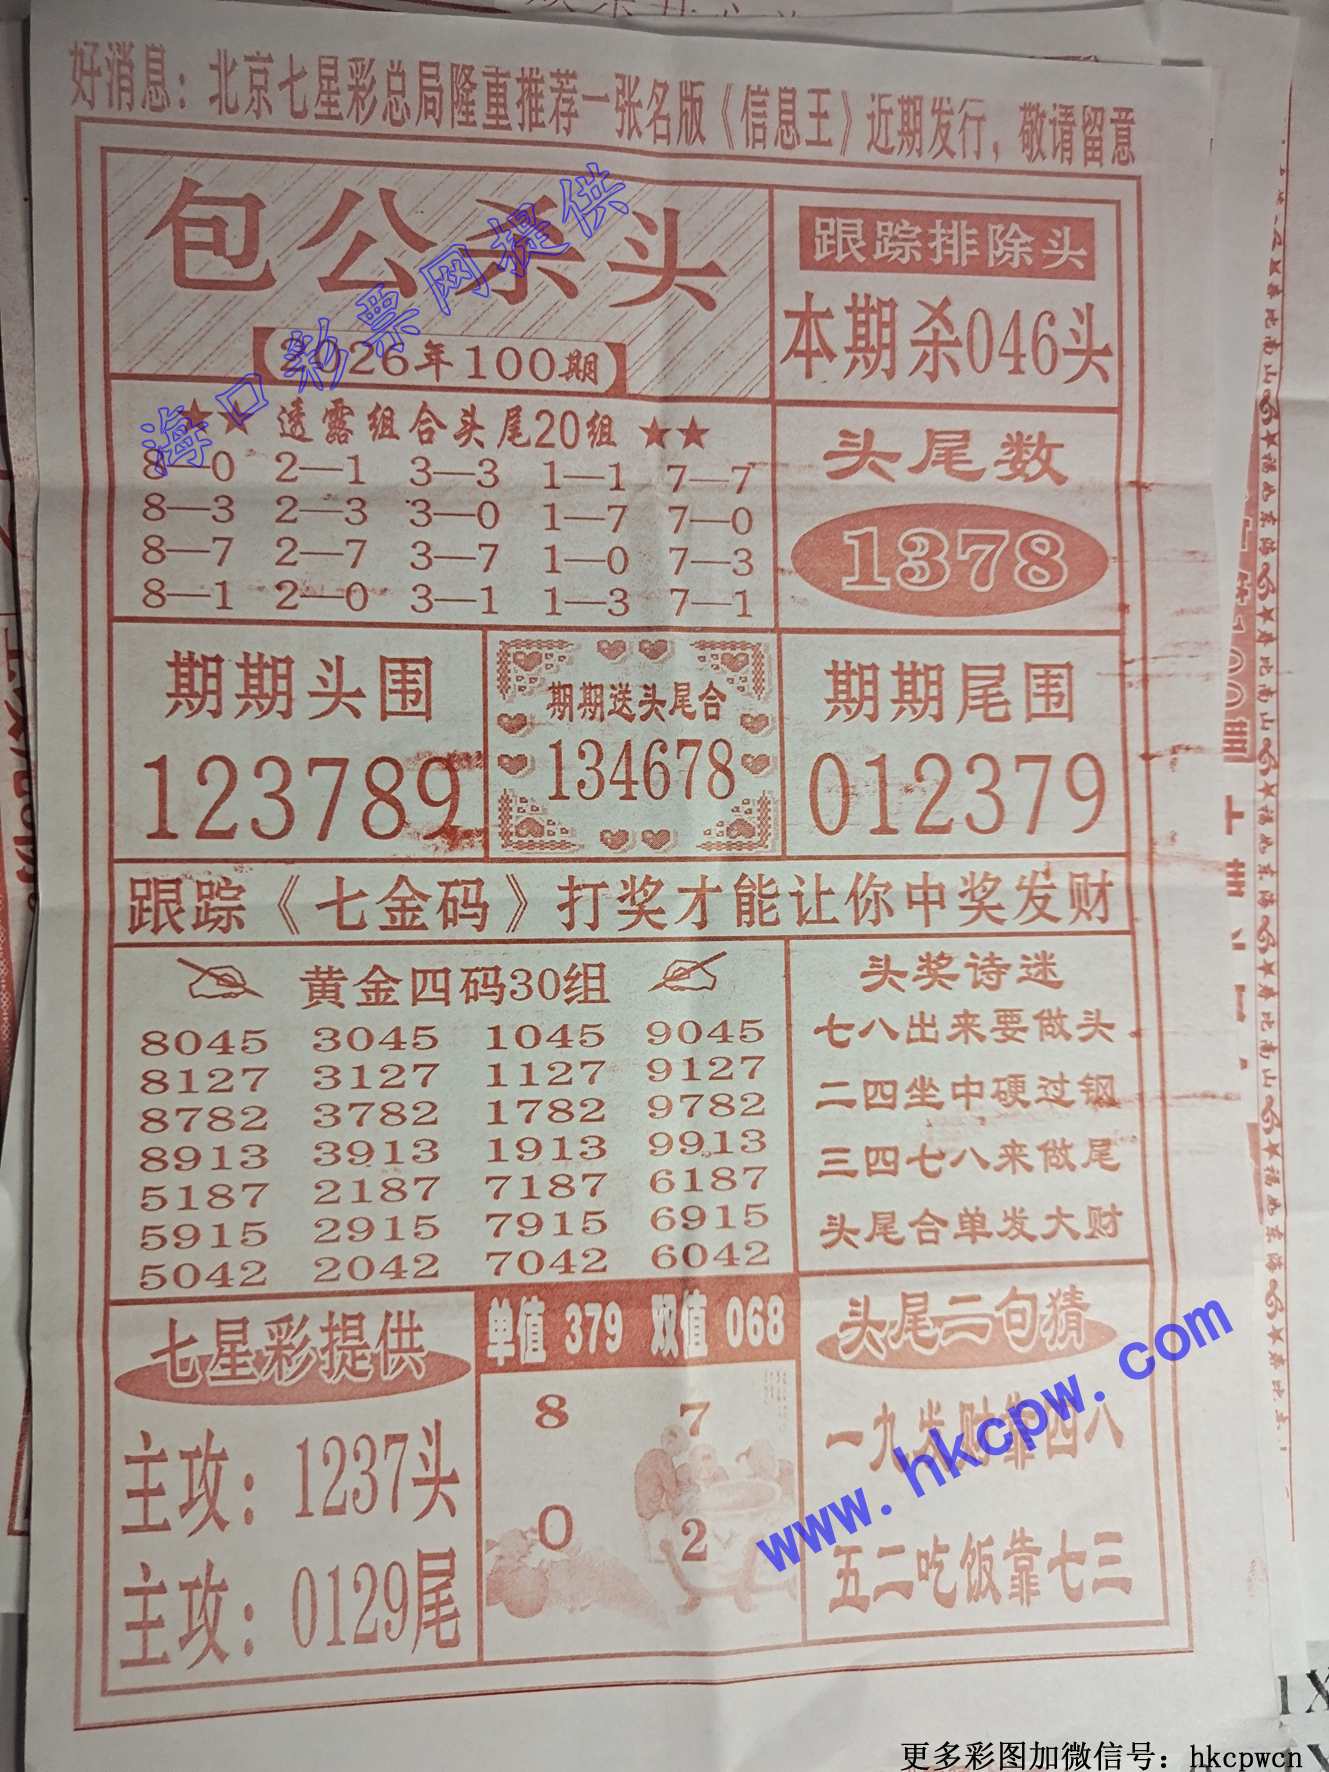 好消息：北京七星彩总局隆重推荐一张名版《信息王》近期发行，敬请留意
包公杀头
【2026年100期】
跟踪排除头
本期杀046头
★★ 透露组合头尾20组 ★★
8—0 2—1 3—3 1—1 7—7
8—3 2—3 3—0 1—7 7—0
8—7 2—7 3—7 1—0 7—3
8—1 2—0 3—1 1—3 7—1
头尾数
1378
期期头围
123789
期期送头尾合
134678
期期尾围
012379
跟踪《七金码》打奖才能让你中奖发财
黄金四码30组
8045 3045 1045 9045
8127 3127 1127 9127
8782 3782 1782 9782
8913 3913 1913 9913
5187 2187 7187 6187
5915 2915 7915 6915
5042 2042 7042 6042
头奖诗迷
七八出来要做头
二四坐中硬过钢
三四七八来做尾
头尾合单发大财
七星彩提供
主攻：1237头
主攻：0129尾
单值 379 双值 068
8 7
0 2
头尾二句猜
一九发财靠四八
五二吃饭靠七三
海口彩票网提供
www.hkcpw.com
更多彩图加微信号：hkcpwcn